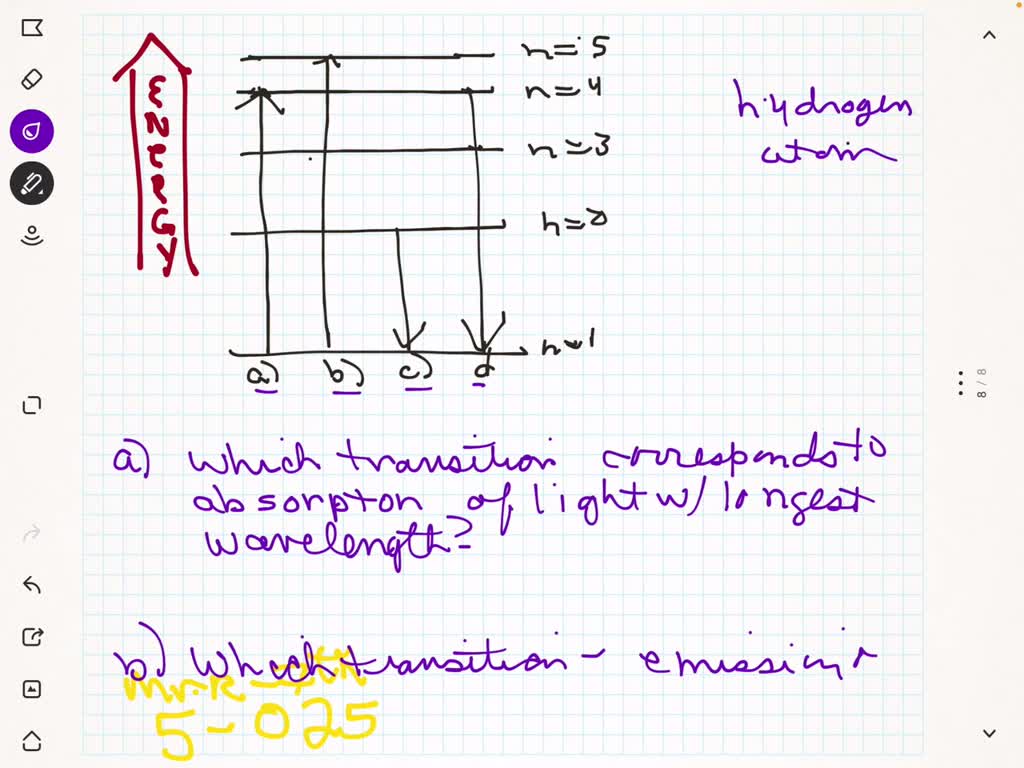 n=5
n=4
n=3
n=2
n=1
ENERGY
hydrogen
atom
a) b) c) d
a) which transition corresponds to
absorpton of light w/ longest
wavelength?
b) Which transition - emission
5-025
8/8